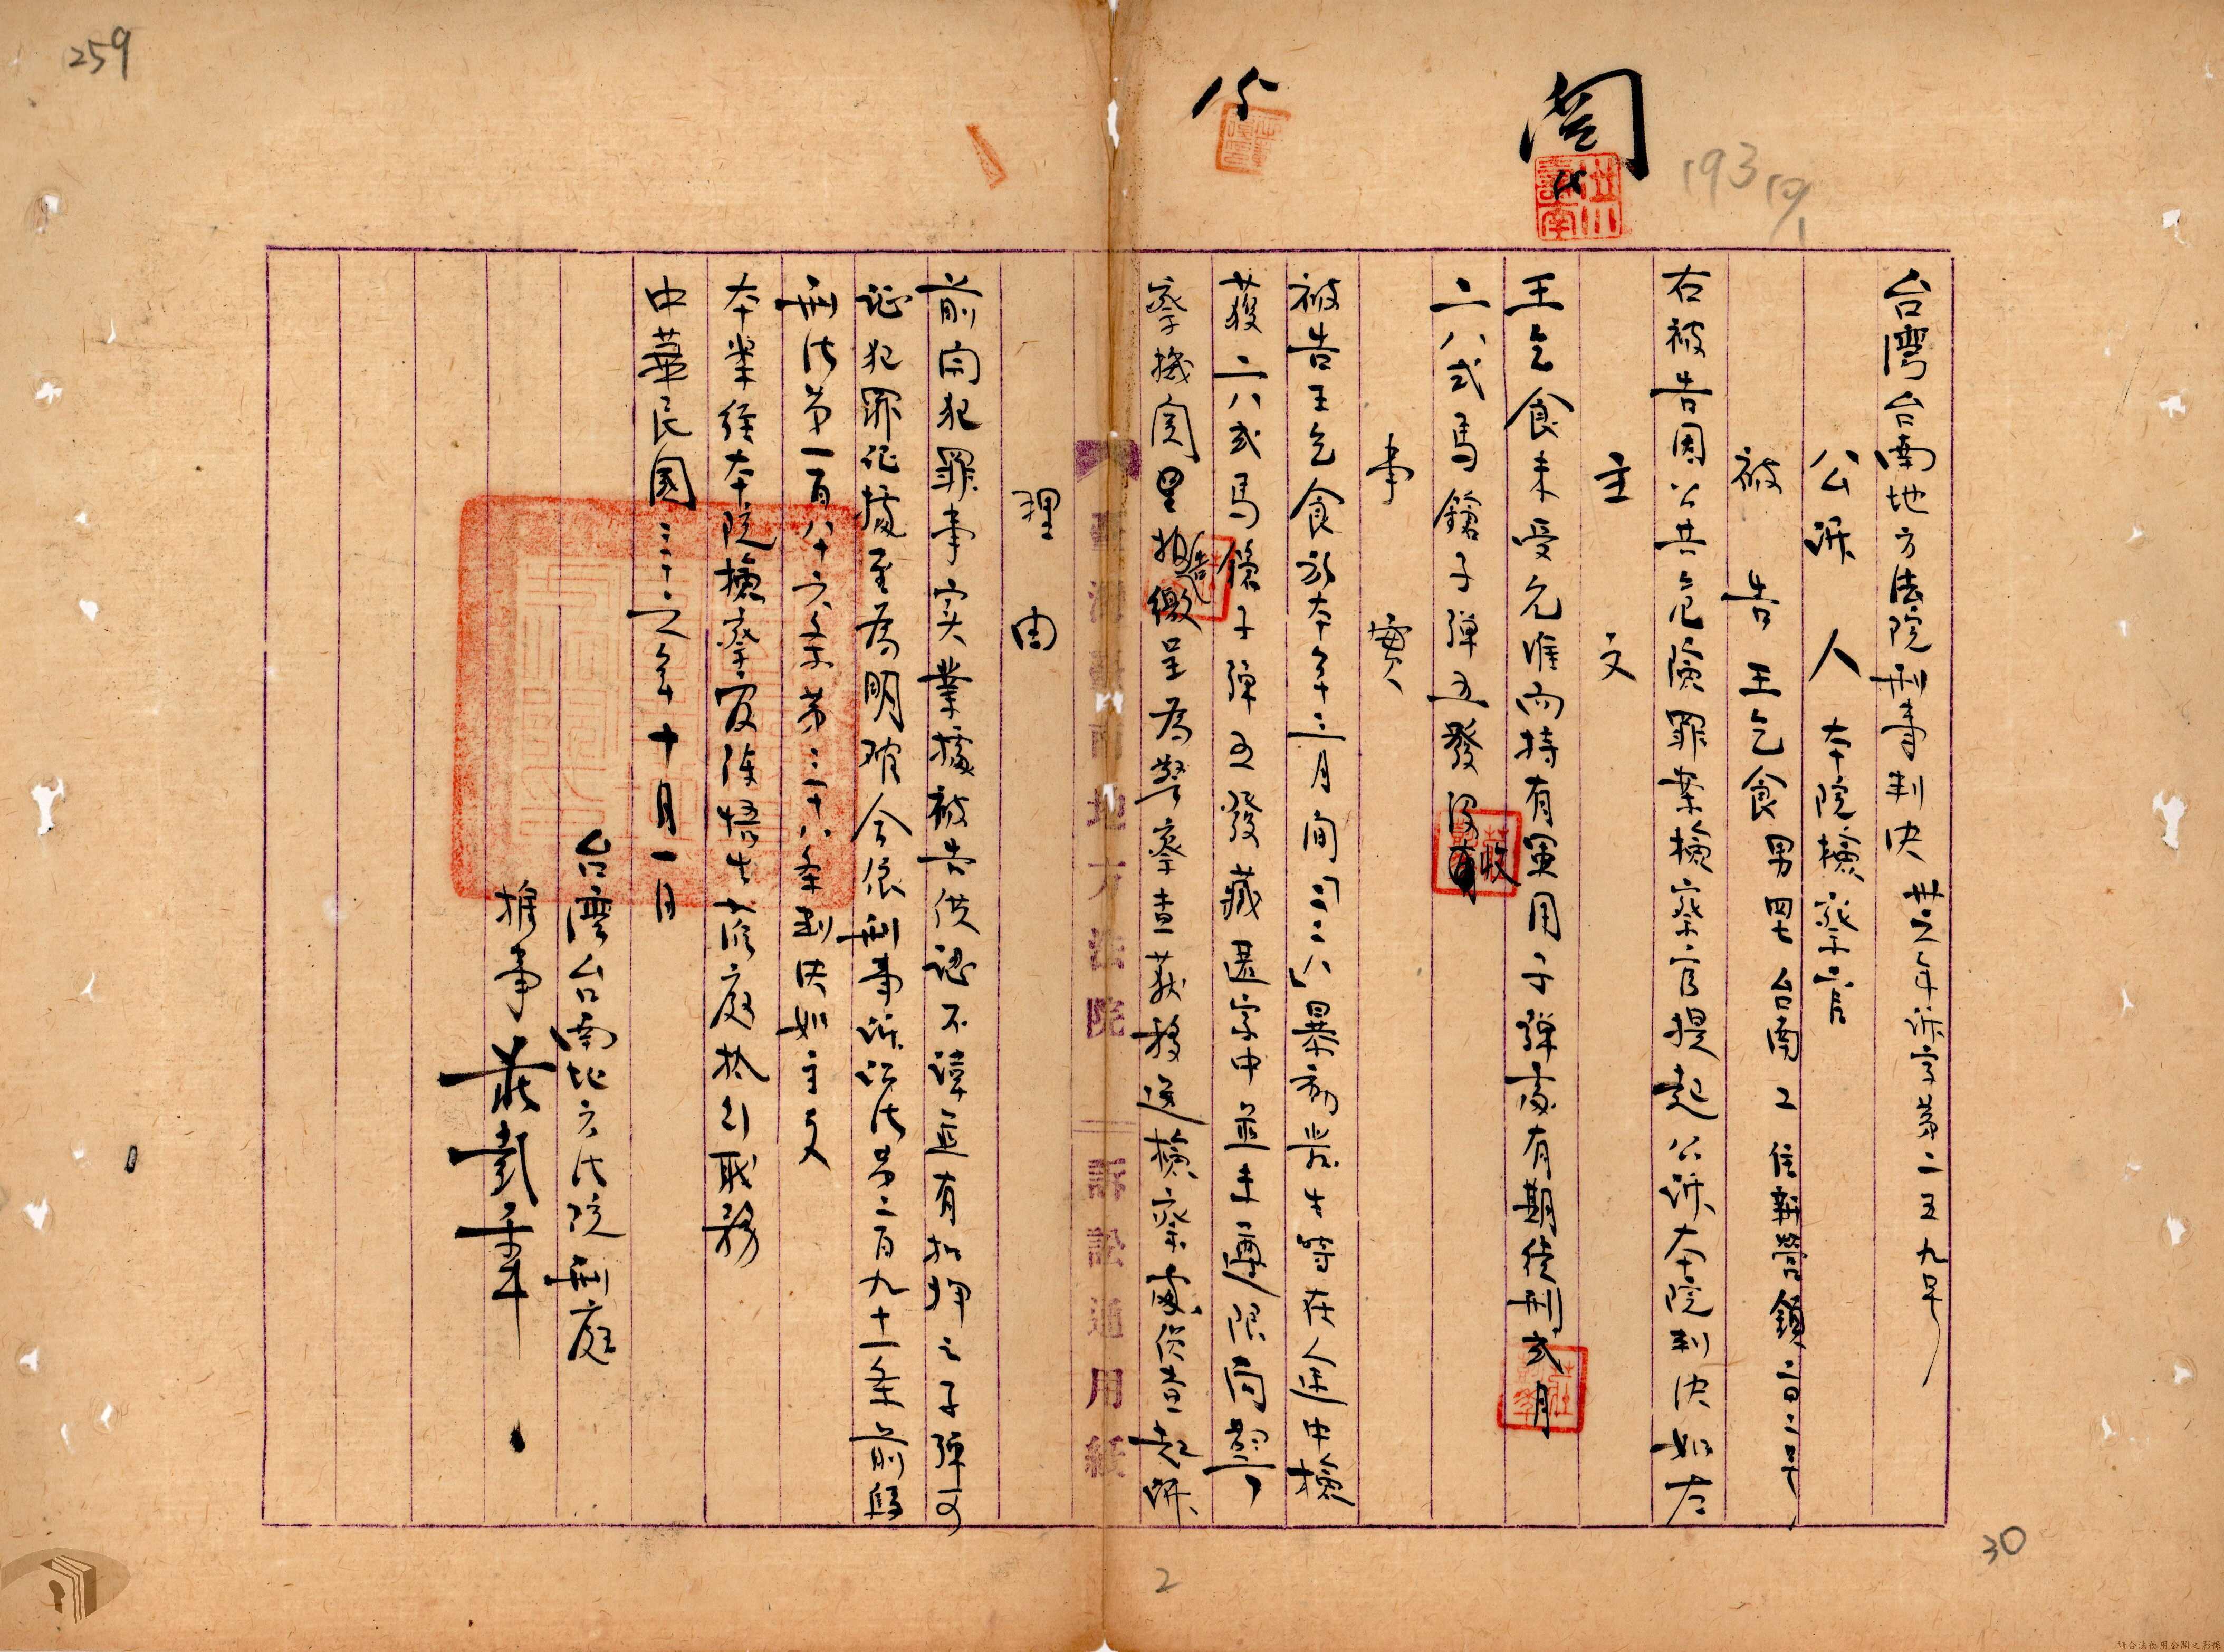 259
閱
代
193
台灣台南地方法院刑事判決 卅六年訴字第二五九号
公訴人 本院檢察官
被告 王乞食 男 台南 工 住新營鎮
右被告因公共危險罪案檢察官提起公訴本院判決如左
主文
王乞食未受允准而持有軍用子彈處有期徒刑弍月
二八式馬鎗子彈五發沒收
事實
被告王乞食於本年三月間「二二八」暴動發生時在人民中檢
獲二八式馬鎗子彈五發藏匿家中
察機関呈繳呈為警察查获移送檢察處偵查起訴
理由
前開犯罪事实業據被告供認不諱並有扣押之子彈可
証犯罪证據至為明確合依刑事訴訟法第二百九十一条前段
刑法第一百八十六条第三十八条判決如主文
本案經本院檢察官陳悟生蒞庭执行职務
中華民國三十六年十月一日
台灣台南地方法院刑庭
推事
臺灣臺南地方法院 訴訟通用紙
2
30
請合法使用公開之影像